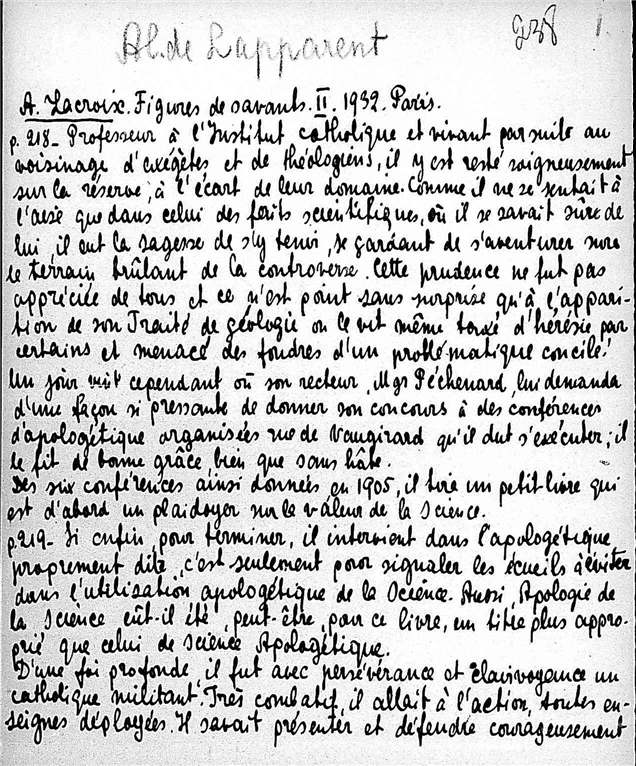 238 1.
Al. de Lapparent
A. Lacroix. Figures de savants. II. 1932. Paris.
p. 218 - Professeur à l'Institut catholique et vivant par suite au
voisinage d'exégètes et de théologiens, il y est resté soigneusement
sur la réserve, à l'écart de leur domaine. Comme il ne se sentait à
l'aise que dans celui des faits scientifiques, où il se savait sûr de
lui, il eut la sagesse de s'y tenir, se gardant de s'aventurer sur
le terrain brûlant de la controverse. Cette prudence ne fut pas
appréciée de tous et ce n'est point sans surprise qu'à l'appari-
tion de son Traité de géologie on le vit même taxé d'hérésie par
certains et menacé des foudres d'un problématique concile!
Un jour vint cependant où son recteur, Mgr Péchenard, lui demanda
d'une façon si pressante de donner son concours à des conférences
d'apologétique organisées rue de Vaugirard qu'il dut s'exécuter; il
le fit de bonne grâce, bien que sans hâte.
Des six conférences ainsi données en 1905, il tire un petit livre qui
est d'abord un plaidoyer sur la valeur de la science.
p. 219 - Si enfin, pour terminer, il intervient dans l'apologétique
proprement dite, c'est seulement pour signaler les écueils à éviter
dans l'utilisation apologétique de la Science. Aussi, Apologie de
la Science eût-il été, peut-être, pour ce livre, un titre plus appro-
prié que celui de Science Apologétique.
D'une foi profonde, il fut avec persévérance et clairvoyance un
catholique militant. Très combatif, il allait à l'action, toutes en-
seignes déployées. Il savait présenter et défendre courageusement